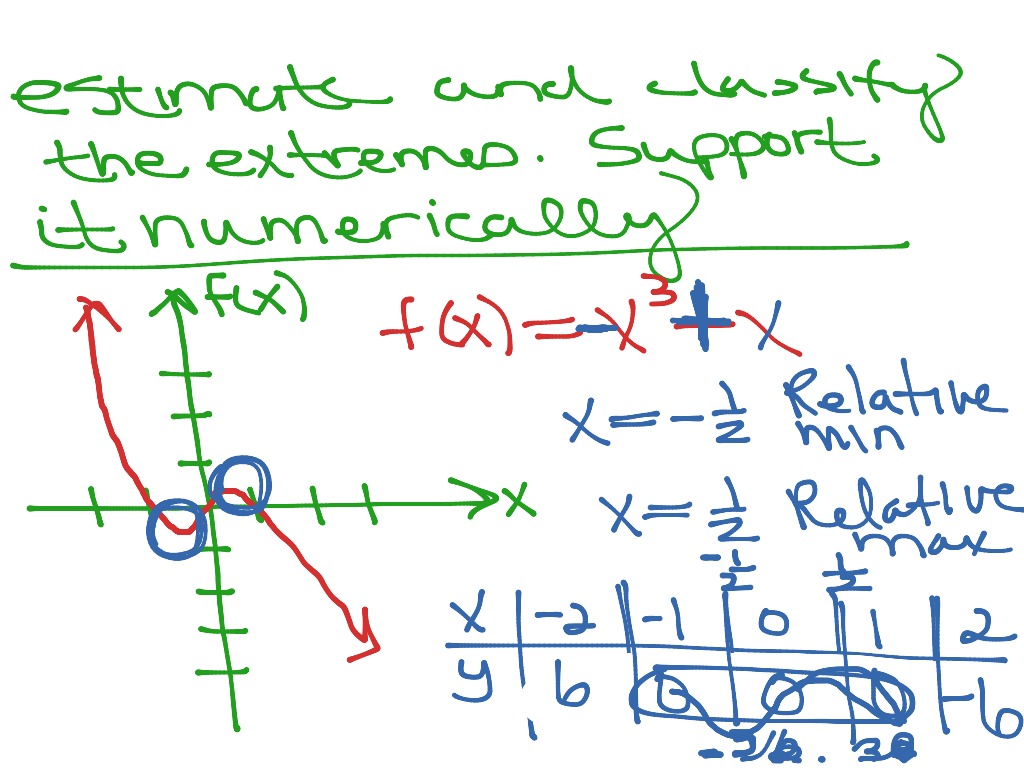 estimate and classify
the extremes. Support
it numerically
f(x)
f(x) = -x³ + x
x = -1/2 Relative
min
x
x = 1/2 Relative
max
-1/2 1/2
x -2 -1 0 1 2
y 6 0 0 0 -6